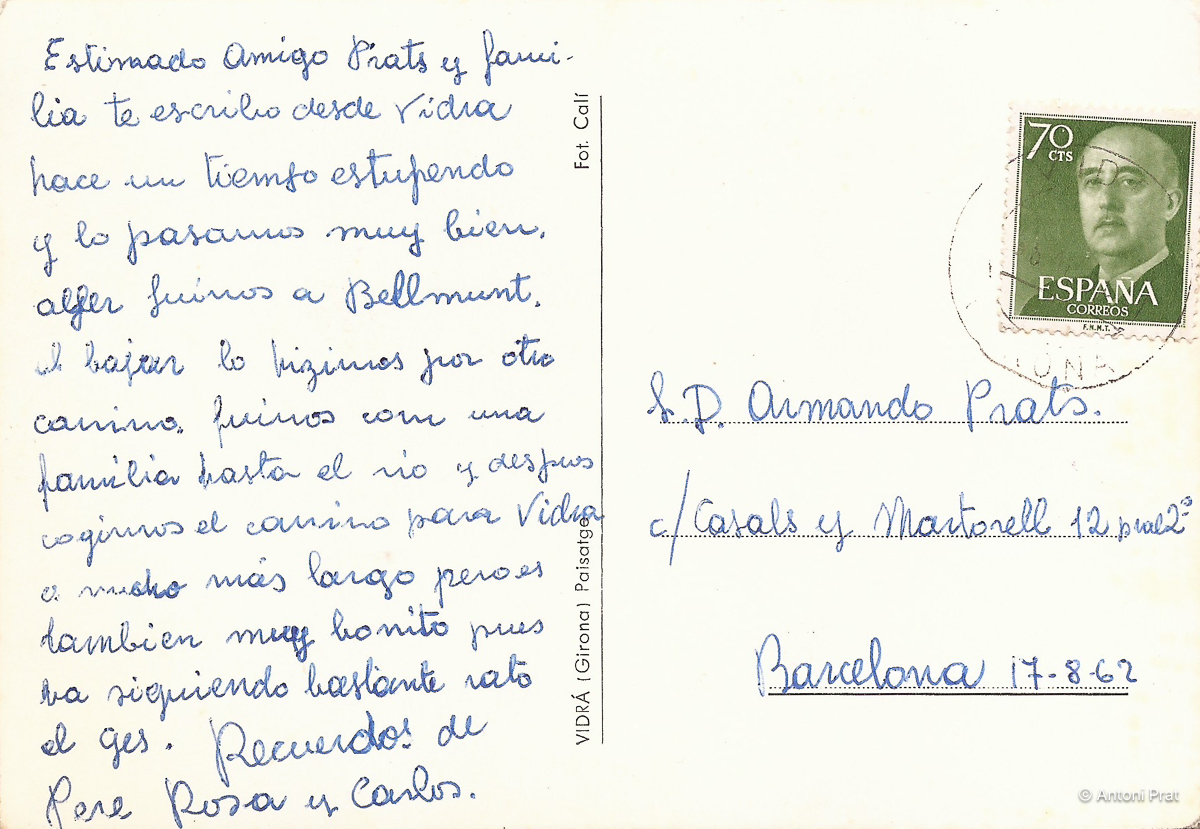 Estimado Amigo Prats y fami-
lia te escribo desde Vidra
hace un tiempo estupendo
y lo pasamos muy bien.
alfer fuimos a Bellmunt.
al bajar lo hizimos por otro
camino. fuimos com una
familia hasta el rio y despues
cogimos el camino para Vidra
es mucho más largo pero es
tambien muy bonito pues
va siguiendo bastante rato
el Ges. Recuerdos de
Pere Rosa y Carlos.
Fot. Calí
VIDRÁ (Girona) Paisatge
70
CTS
ESPAÑA
CORREOS
F.N.M.T.
S.D. Armando Prats.
c/ Casals y Martorell 12 pral 2ª
Barcelona 17-8-62
© Antoni Prat